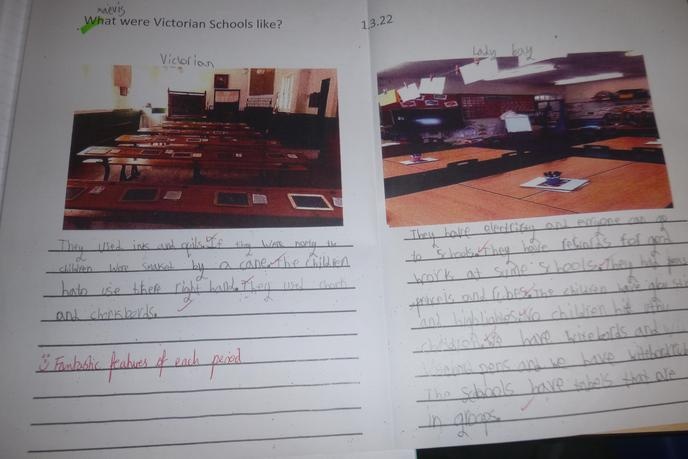 Maevis
What were Victorian Schools like?
1.3.22
Victorian
They used inks and quills. If they were norty the
children were smaked by a cane. The children
hato use there right hand. They used chorch
and chorkbords.
Fantastic features of each period
Lady bay
They have electrisity and evryone can go
to Schools. They have rewards for good
works at some Schools. They had
pencils and rubes. The children have
and highlightes. No children hit other
children. We have witebords and
pens and we have
The Schools have tabels that are
in groops.